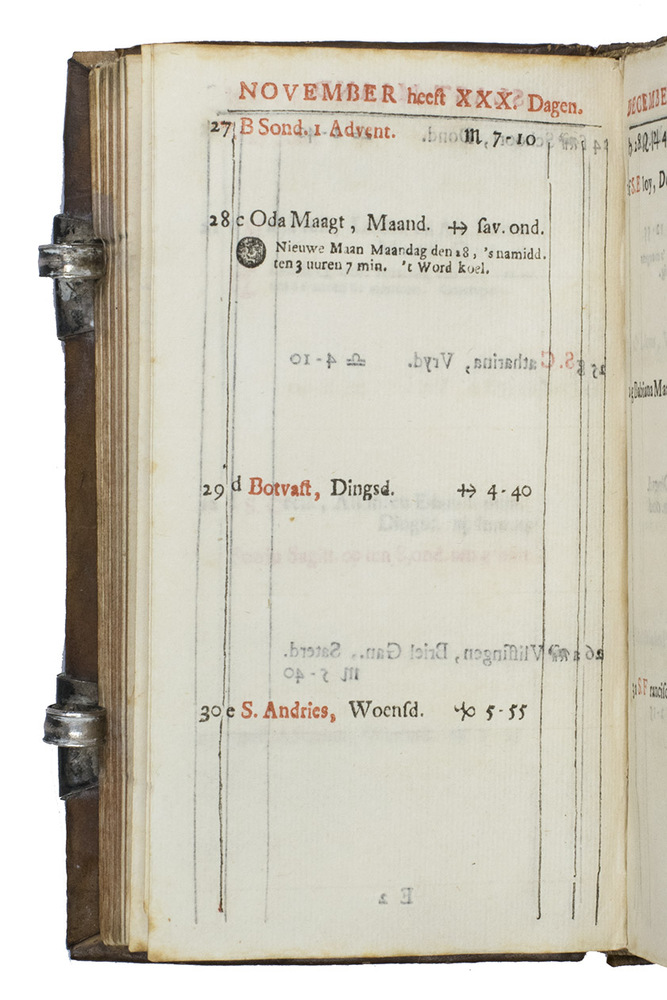 NOVEMBER heeft XXX. Dagen.
27 B Sond. 1 Advent. ♏ 7-10
28 c Oda Maagt, Maand. ♐ sav. ond.
Nieuwe Maan Maandag den 28, 's namidd.
ten 3 uuren 7 min. 't Word koel.
29 d Botvast, Dingsd. ♐ 4-40
30 e S. Andries, Woensd. ♑ 5-55